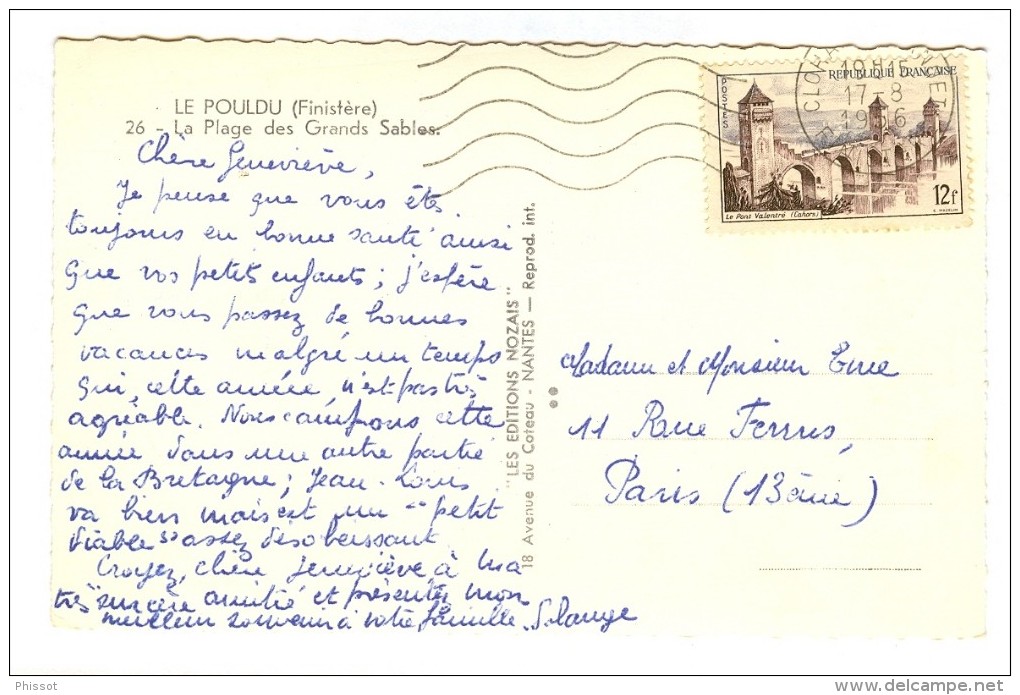 LE POULDU (Finistère)
26 - La Plage des Grands Sables.
Chère Geneviève,
Je pense que vous êtes
toujours en bonne santé ainsi
que vos petits enfants ; j'espère
que vous passez de bonnes
vacances malgré un temps
qui, cette année, n'est pas très
agréable. Nous campons cette
année dans une autre partie
de la Bretagne ; Jean-Louis
va bien mais est un "petit
diable" assez désobéissant.
Croyez, chère Geneviève à ma
très sincère amitié et présentez mon
meilleur souvenir à votre famille. Solange
"LES EDITIONS NOZAIS"
18 Avenue du Coteau - NANTES — Reprod. int.
POSTES
REPUBLIQUE FRANÇAISE
Le Pont Valentré (Cahors)
12f
19H15
17-8
1956
Madame et Monsieur
11 Rue Ferrus,
Paris (13ème)
Phissot
www.delcampe.net